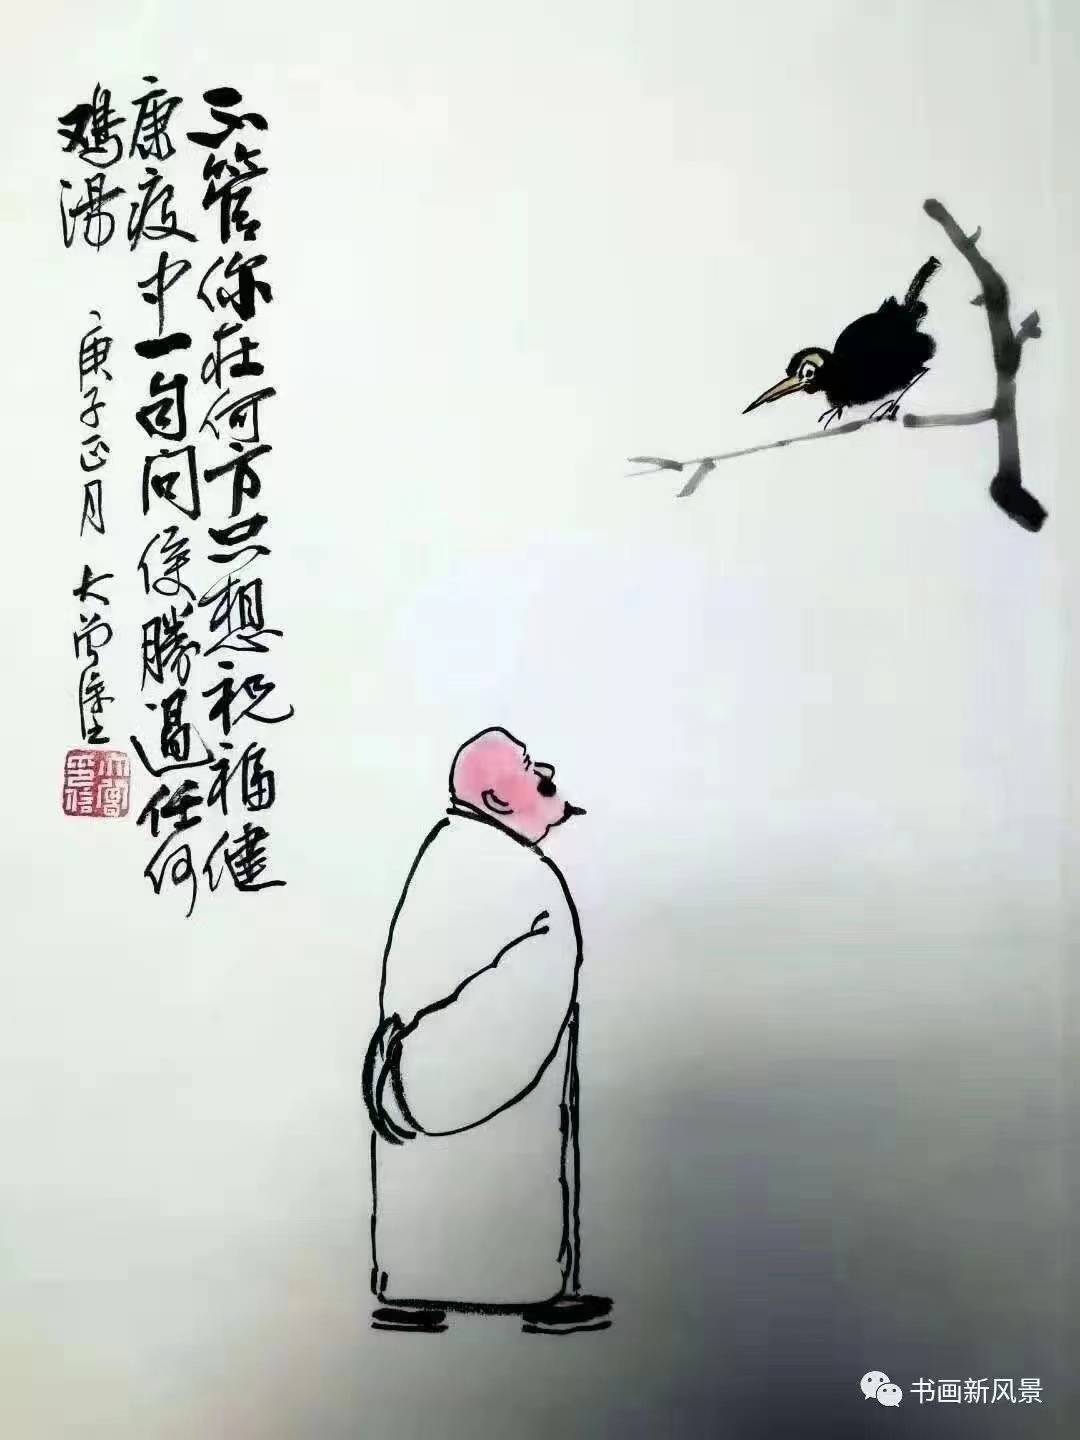 不管你在何方只想祝福健
康疫中一句问候勝過任何
鸡湯
庚子正月 大曾
书画新风景